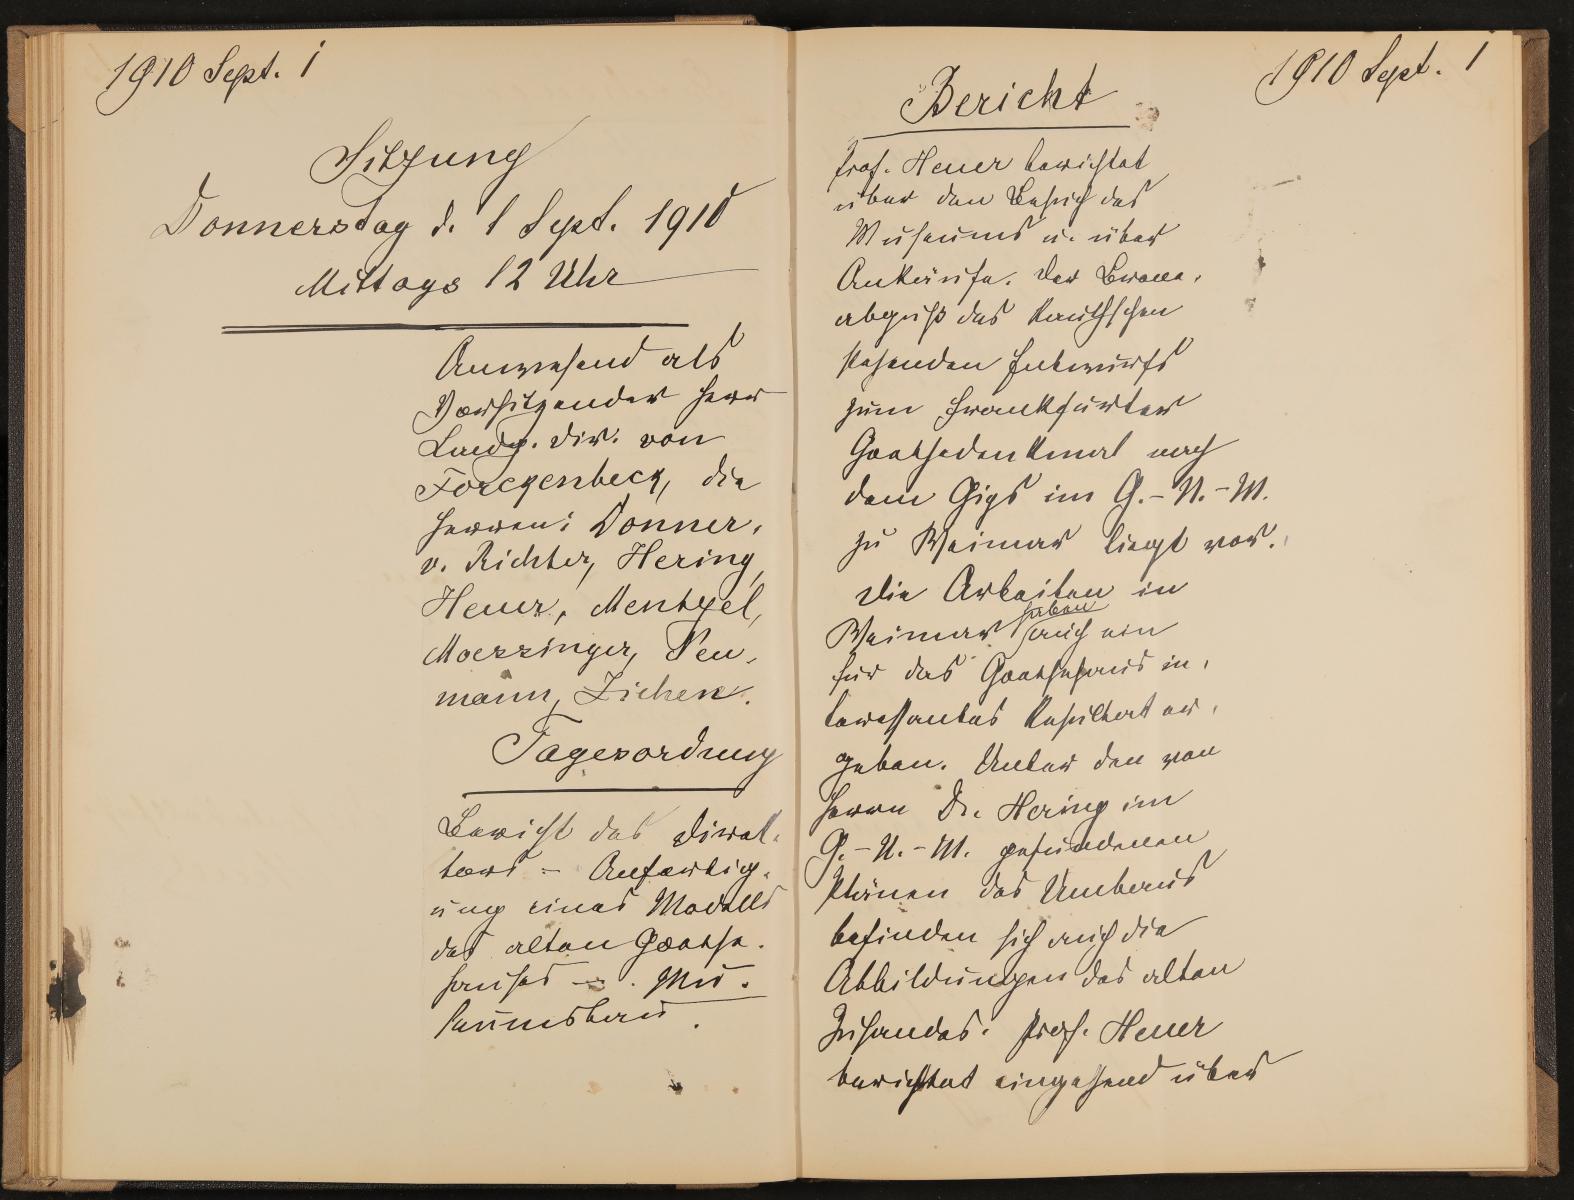 1910 Sept. 1
Sitzung
Donnerstag d. 1 Sept. 1910
Mittags 12 Uhr
Anwesend als
Vorsitzender Herr
Landg. Dir. von
Forckenbeck, die
Herren: Donner-
v. Richter, Hering,
Heuer, Mentzel,
Moessinger, Neu-
mann, Ziehen.
Tagesordnung
Bericht des Direk-
tors - Anfertig-
ung eines Modells
des alten Goethe-
hauses - Mu-
seumsbau.
1910 Sept. 1
Bericht
Prof. Heuer berichtet
über den Besuch des
Museums u. über
Ankäufe. Der Bronce-
abguß des Rauchschen
stehenden Entwurfs
zum Frankfurter
Goethedenkmal nach
dem Gips im G.-N.-M.
zu Weimar liegt vor.
Die Arbeiten in
Weimar haben auch ein
für das Goethehaus in-
teressantes Resultat er-
geben. Unter den von
Herrn Dr. Hering im
G.-N.-M. gefundenen
Plänen des Umbaus
befinden sich auch die
Abbildungen des alten
Zustandes. Prof. Heuer
berichtet eingehend über